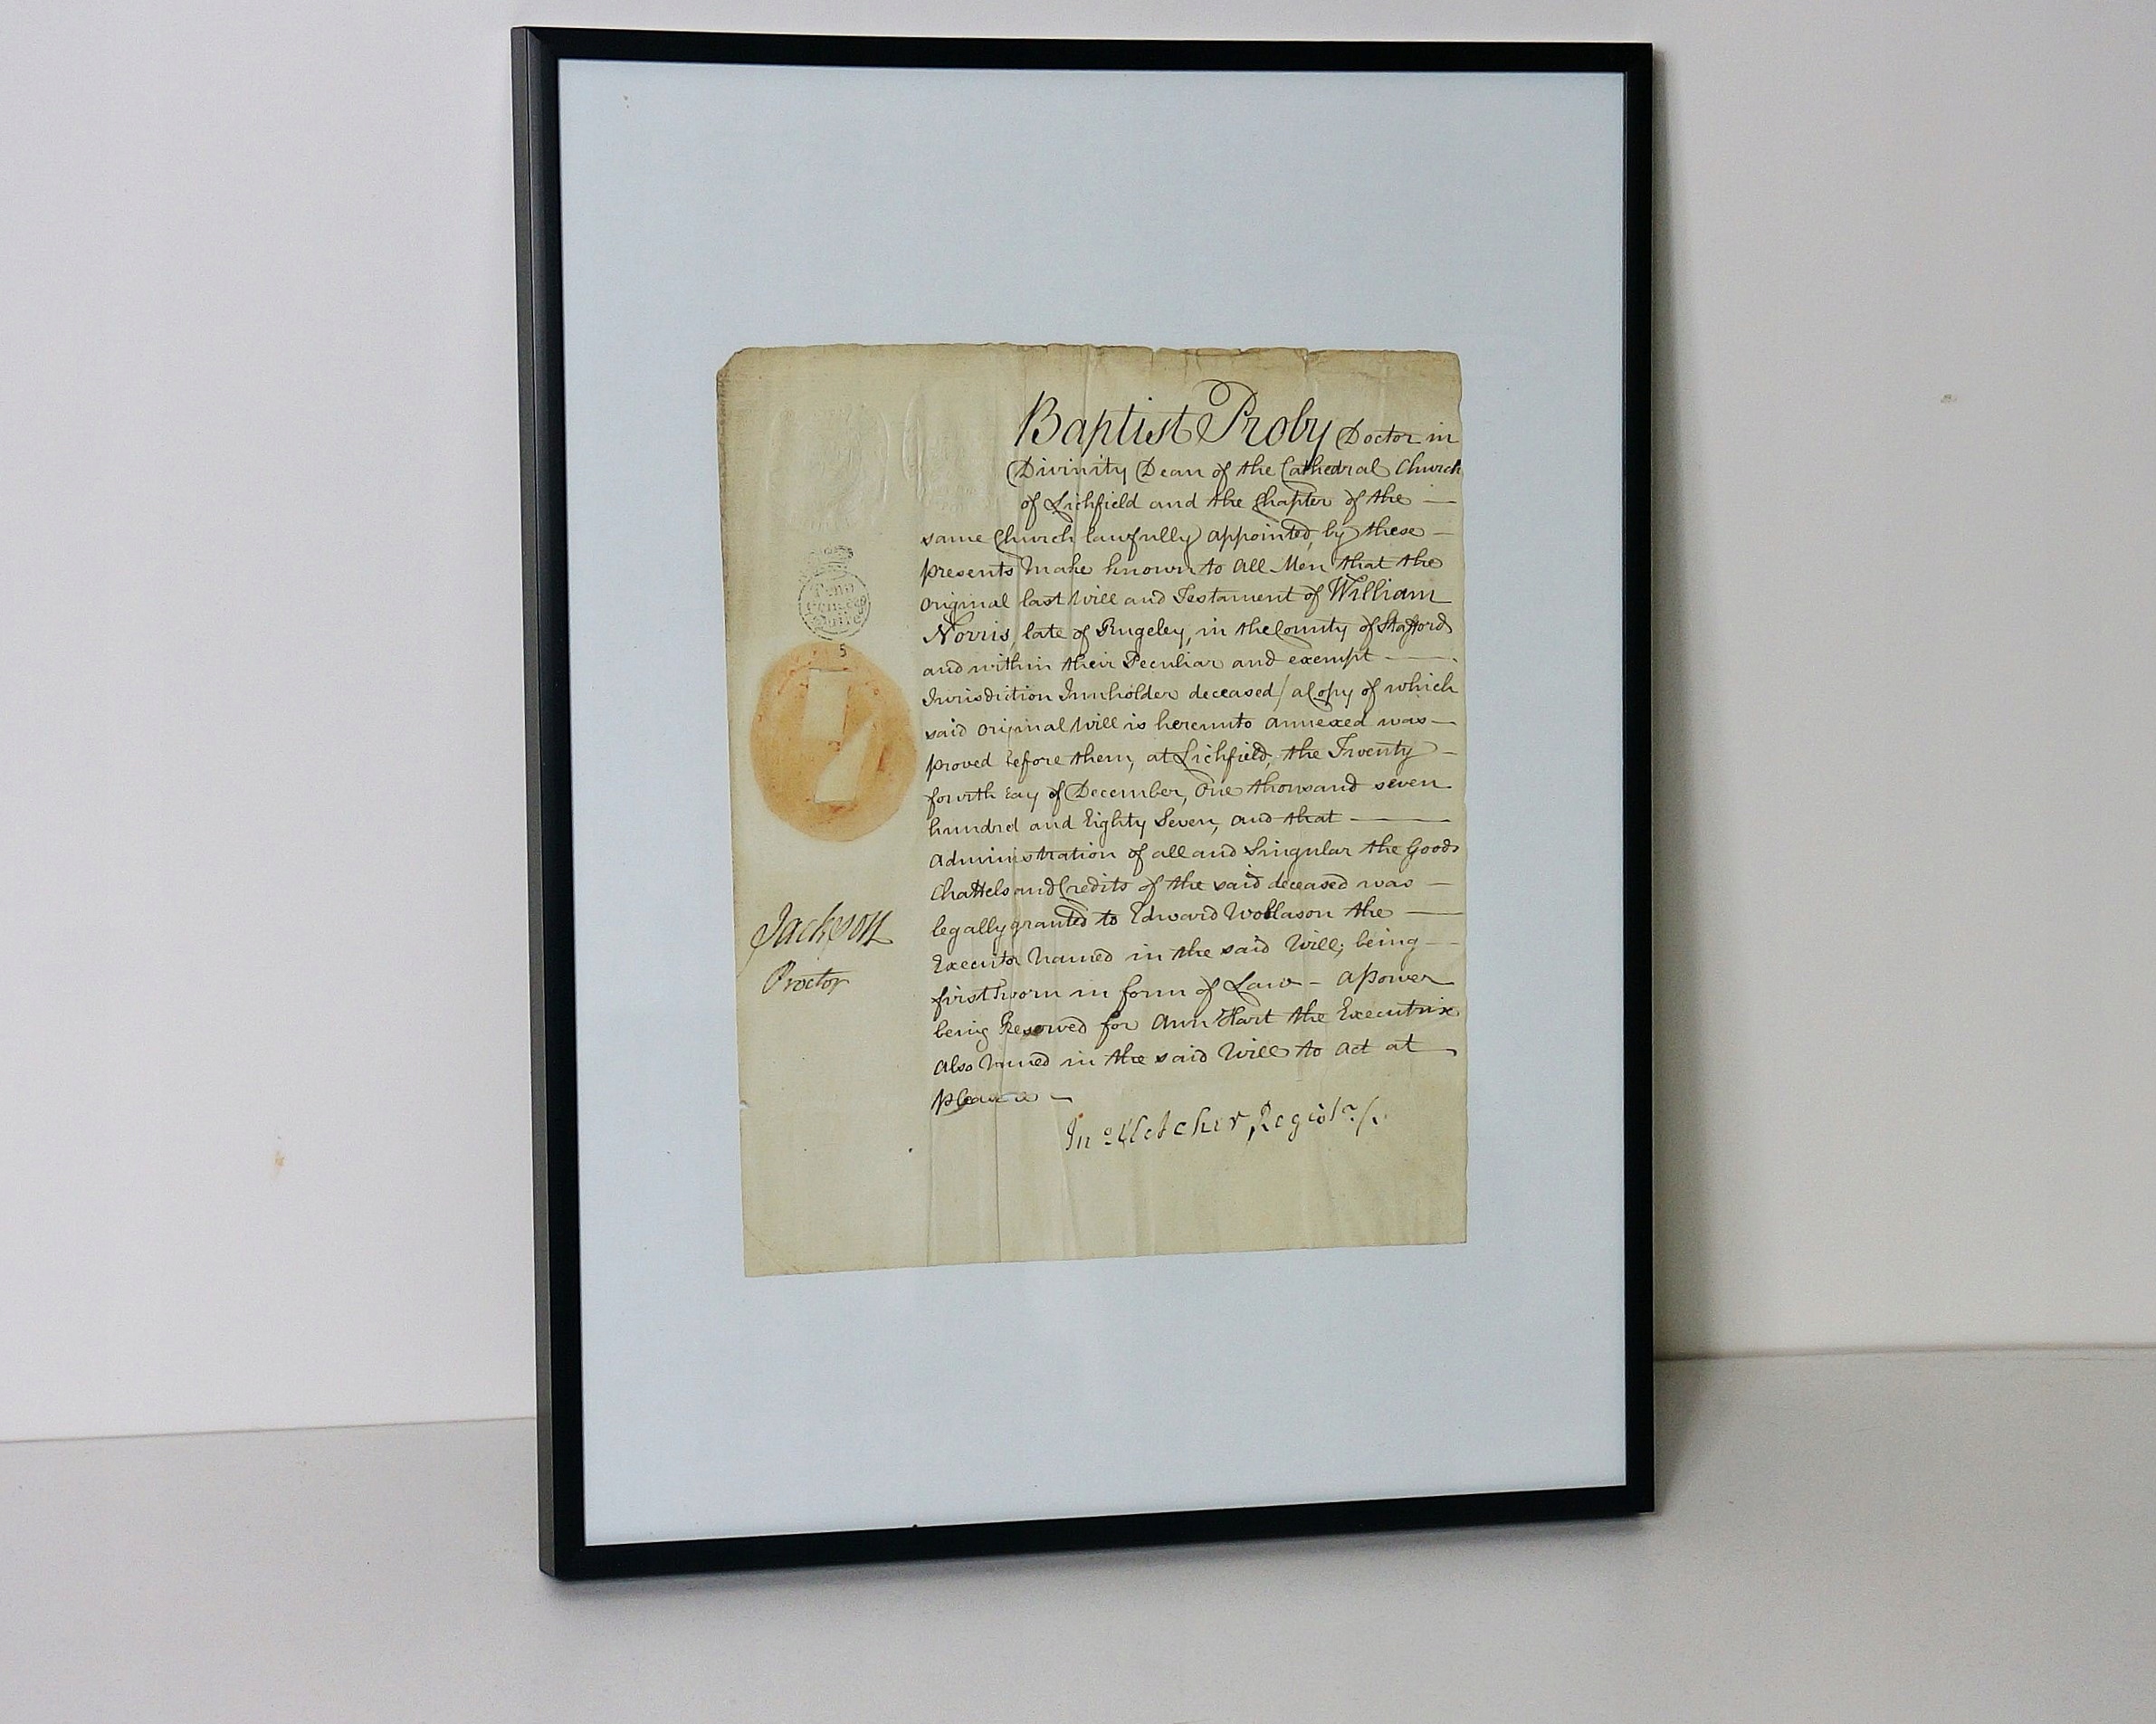 Baptist Proby Doctor in
Divinity Dean of the Cathedral Church
of Lichfield and the Chapter of the
same Church lawfully appointed, by these
presents make known to All Men that the
original last Will and Testament of William
Norris, late of Rugeley, in the County of Stafford
and within their Peculiar and exempt
Jurisdiction Innholder deceased / a Copy of which
said original Will is hereunto annexed was
proved before them, at Lichfield, the Twenty
fourth day of December, One thousand seven
hundred and Eighty Seven, and that
Administration of all and Singular the Goods
Chattels and Credits of the said deceased was
legally granted to Edward Wollason the
Executor Named in the said Will; being
first Sworn in form of Law - A Power
being Reserved for Ann Hart the Executrix
also Named in the said Will to Act at
pleasure
Jno Fletcher, Regist.r
5
Jackson
Proctor